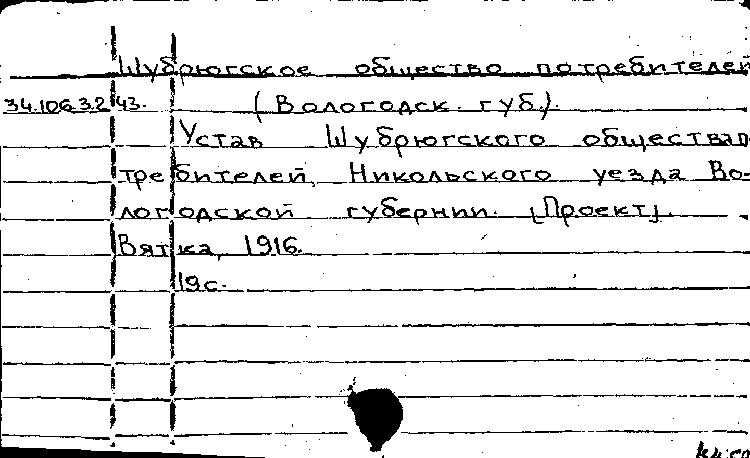 Шубрюгское общество потребителей
34.106.3.2/43. (Вологодск. губ.).
Устав Шубрюгского общества п
требителей, Никольского уезда Во-
логодской губернии. [Проект].
Вятка, 1916.
19с.